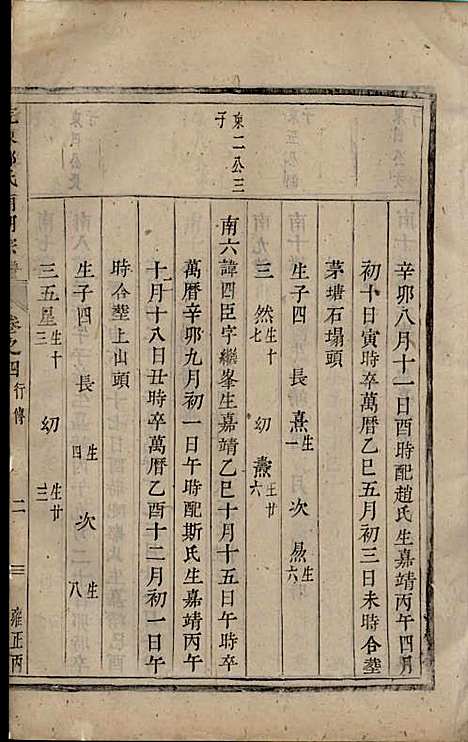 辛卯八月十一日酉時配趙氏生嘉靖丙午四月
初十日寅時卒萬曆乙巳五月初三日未時合塟
茅塘石塌頭
生子四 長 熹生一 次 勗生六
三 然生十七 幼 燾生廿六
東二公三子
南六諱四臣字繼峯生嘉靖乙巳十月十五日午時卒
萬曆辛卯九月初一日午時配斯氏生嘉靖丙午
十月十八日丑時卒萬曆乙酉十二月初一日午
時合塟上山頭
生子四 長 生四 次 生八
三五星生十三 幼 生廿三
卷之四 行傳 二 雍正丙